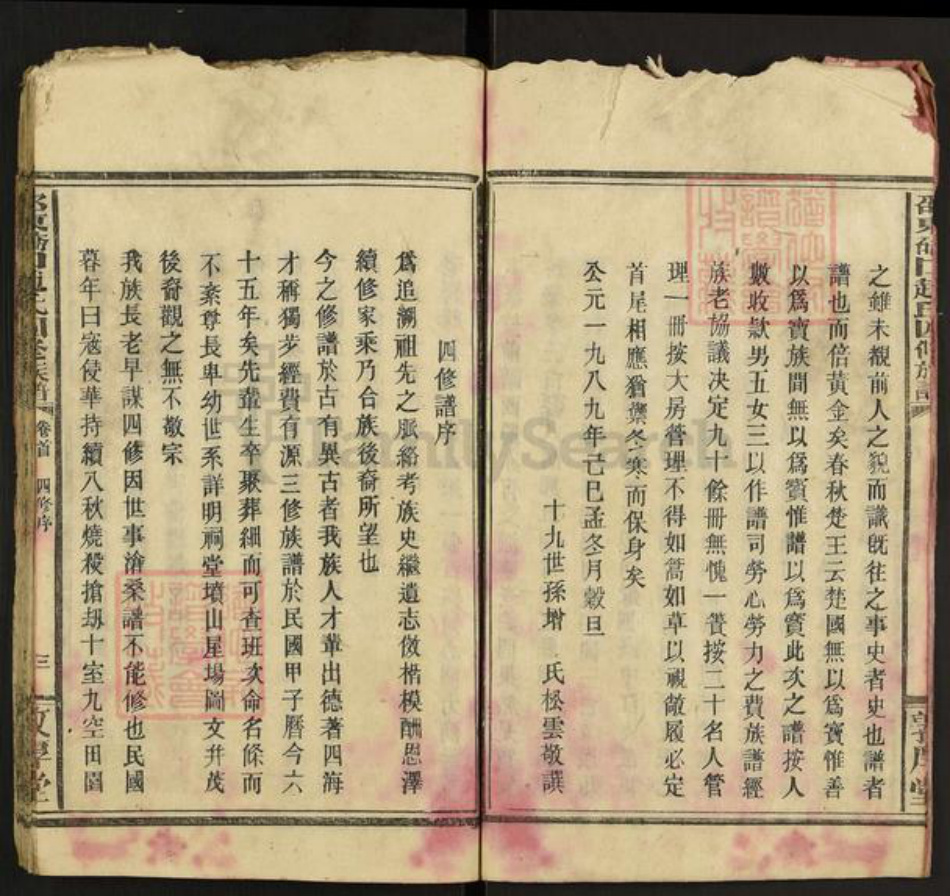 之雖未覩前人之貌而識旣往之事史者史也譜者
譜也而倍黃金矣春秋楚王云楚國無以爲寳惟善
以爲寳族間無以爲寳惟譜以爲寳此次之譜按人
數收欵男五女三以作譜司勞心勞力之費族譜經
族老協議决定九十餘冊無愧一賛按二十名人管
理一冊按大房管理不得如蒿如草以視敝履必定
首尾相應猶藥冬寒而保身矣
公元一九八九年己巳孟冬月穀旦
十九世孫增 氏松雲敬譔
四修譜序
爲追溯祖先之脉絡考族史繼遺志倣楷模酬恩澤
續修家乘乃合族後裔所望也
今之修譜於古有異古者我族人才輩出德著四海
才稱獨步經費有源三修族譜於民國甲子曆今六
十五年矣先輩生卒聚葬細而可查班次命名條而
不紊尊長卑幼世系詳明祠堂墳山屋場圖文幷茂
後裔觀之無不敬宗
我族長老早謀四修因世事滄桑譜不能修也民國
暮年日寇侵華持續八秋燒殺搶刼十室九空田園
卷首 四修序
三
敦厚堂
FamilySearch